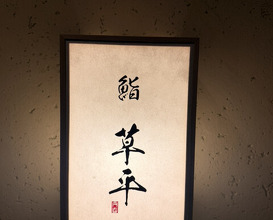 鮨
草平